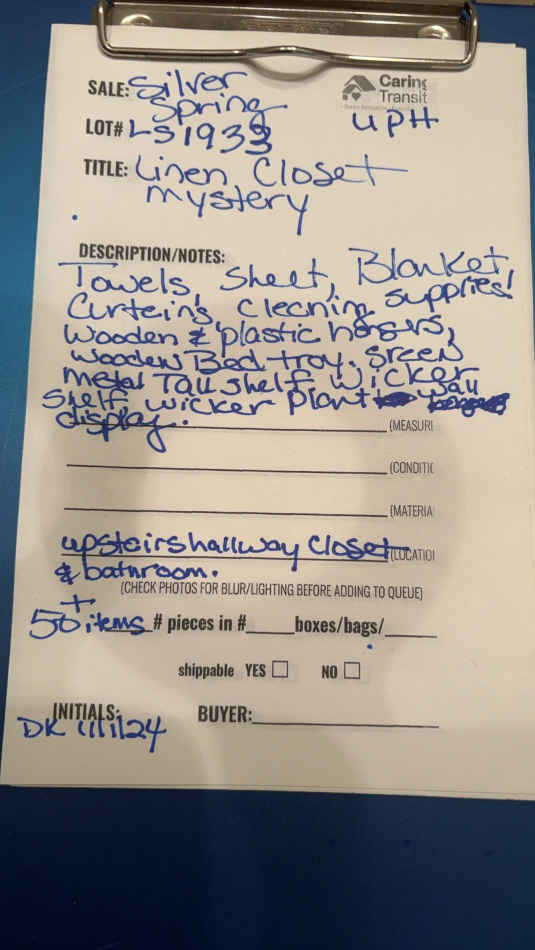 SALE: Silver
Spring
Caring
Transit
LOT# LS1933
UPH
TITLE: Linen Closet
mystery
DESCRIPTION/NOTES:
Towels, Sheet, Blanket,
Curteins, cleaning supplies!
Wooden & plastic hangers,
Wooden Bed tray. green
metal Tall shelf. Wicker
shelf wicker plant wall
display.
(MEASURI
(CONDITIC
(MATERIA
upstairs hallway Closet (LOCATIOI
& bathroom.
(CHECK PHOTOS FOR BLUR/LIGHTING BEFORE ADDING TO QUEUE)
50+ items # pieces in # boxes/bags/
shippable YES ☐ NO ☐
INITIALS: BUYER:
DK 11/1/24